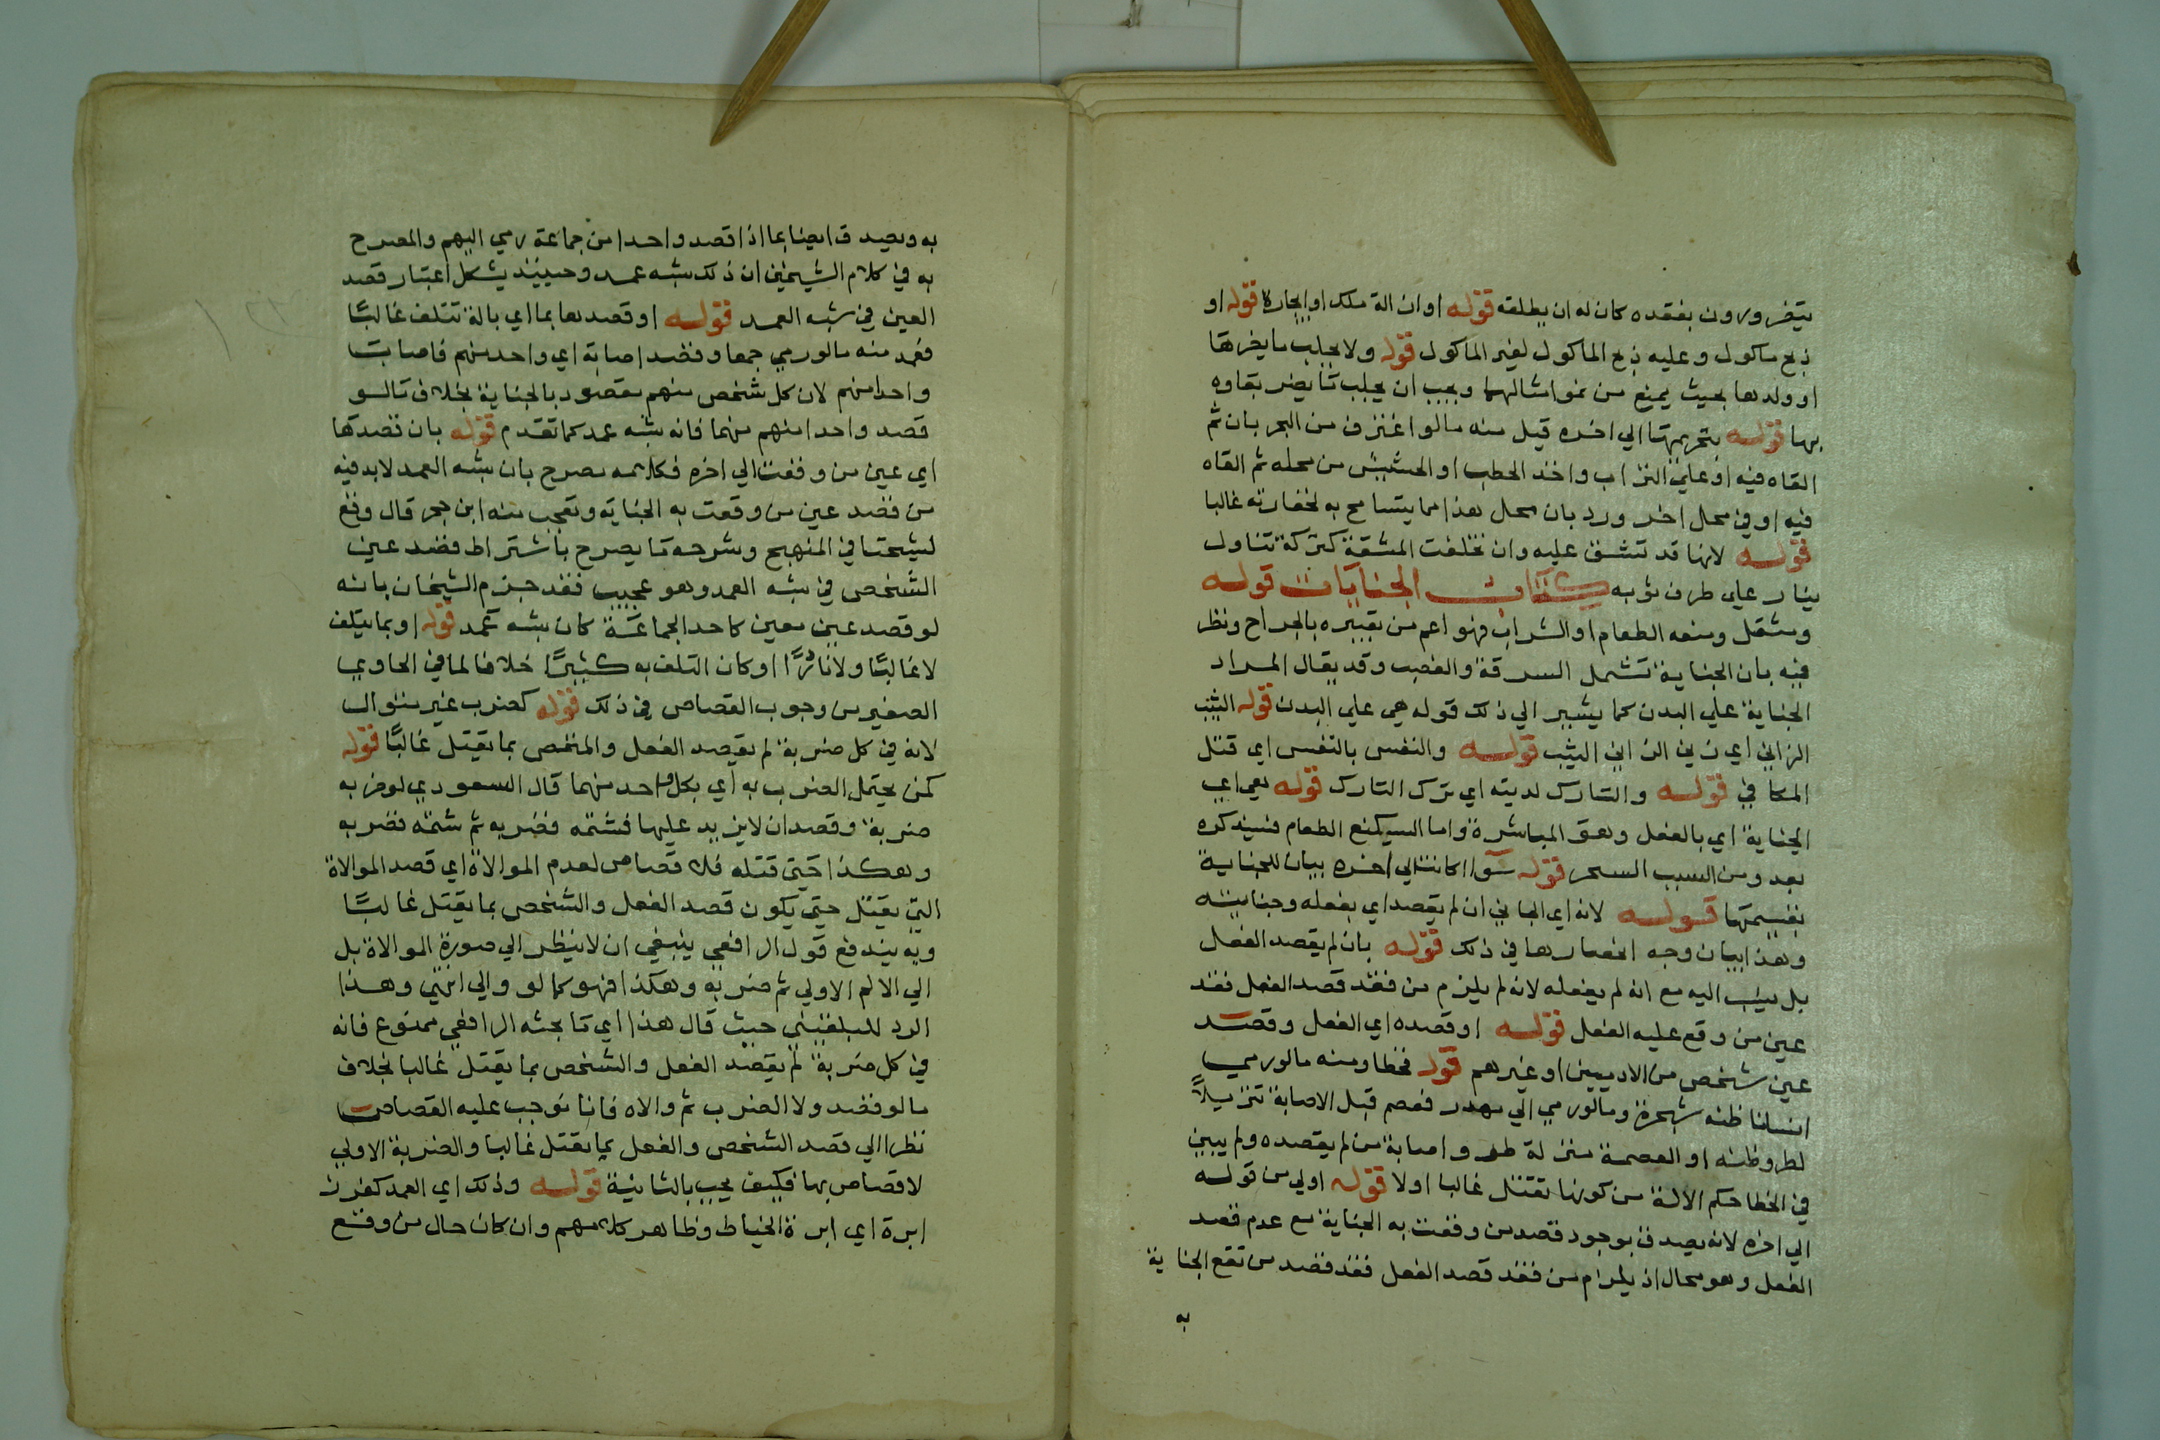 يتضررون بفقده كان له ان يطلقه قوله او ان الة ملك او اجارة قوله او
ذبح ماكول وعليه ذبح الماكول لغير الماكول قوله ولا يحلب ما يضرها
او ولدها بحيث يمنع من نمو امثالهما ويجب ان يحلب ما يضر بقاوه
بها قوله بتحريمها الي اخره قيل منه ما لو اغترف من البحر بان ثم
القاه فيه او علي التراب واخذ الحطب او الحشيش من محله ثم القاه
فيه او في محل اخر ورد بان محل هذا مما يتسامح به لحقارته غالبا
قوله لانها قد تشق عليه وان تخلفت المشقة كتركة تناول
علي طرف ثوبه كتاب الجنايات قوله
ومثقل ومنعه الطعام او الشراب فهو اعم من تعبيره بالجراح ونظر
فيه بان الجناية تشمل السرقة والغصب وقد يقال المراد
الجناية علي البدن كما يشير الي ذلك قوله هي علي البدن قوله الثيب
الزاني اي زني الزاني الثيب قوله والنفس بالنفس اي قتل
المكافي قوله والتارك لدينه اي ترك التارك قوله هي اي
الجناية اي بالفعل وهو المباشرة واما السبب كمنع الطعام فسيذكره
بعد ومن السبب السحر قوله سوا اكانت الي اخره بيان للجناية
بقسيمتها قوله لانه اي الجاني ان لم يقصد اي بفعله وجنايته
وهذا بيان وجه انحصارها في ذلك قوله بان لم يقصد الفعل
بل نسب اليه مع انه لم يفعله لانه لم يلزم من فقد قصد الفعل فقد
عين من وقع عليه الفعل قوله او قصده اي الفعل وقصد
عين شخص من الادميين او غيرهم قوله فخطا ومنه ما لو رمي
انسانا ظنه شجرة وما لو رمي الي مهدر فعصم قبل الاصابة تنزيلا
لطرو ظنه او العصمة منزلة طرو اصابة من لم يقصده ولم يبين
في الخطا حكم الالة من كونها تقتل غالبا او لا قوله اولي من قوله
الي اخره لانه يصدق بوجود قصد من وقعت به الجناية مع عدم قصد
الفعل وهو محال اذ يلزم من فقد قصد الفعل فقد قصد من تقع الجناية
به
به ويصدق ايضا بما اذا قصد واحدا من جماعة رمي اليهم والمصرح
به في كلام الشيخين ان ذلك شبه عمد وحينيذ يشكل اعتبار قصد
العين في شبه العمد قوله او قصدهما بما اي بالة تتلف غالبا
فعمد منه ما لو رمي جمعا وقصد اصابة اي واحد منهم فاصابت
واحدا منهم لان كل شخص منهم مقصود بالجناية بخلاف ما لو
قصد واحدا منهم منهما فانه شبه عمد كما تقدم قوله بان قصدها
اي عين من وقعت الي اخره فكلامه مصرح بان شبه العمد لابد فيه
من قصد عين من وقعت به الجناية وتعجب منه ابن حجر قال وقع
لشيخنا في المنهج وشرحه ما يصرح باشتراط قصد عين
الشخص في شبه العمد وهو عجيب فقد جزم الشيخان بانه
لو قصد عين معين كاحد الجماعة كان شبه عمد قوله او بما يتلف
لا غالبا ولا نادرا او كان التلف به كثيرا خلافا لما في الحاوي
الصغير من وجوب القصاص في ذلك قوله كضرب غير متوال
لانه في كل ضربة لم يقصد الفعل والشخص بما يقتل غالبا قوله
كمن يحتمل الضرب به اي بكل واحد منهما قال السعودي لو ضربه
ضربة وقصد ان لا يزيد عليها فشتمه فضربه ثم شتمه فضربه
وهكذا حتي قتله فلا قصاص لعدم الموالاة اي قصد الموالاة
التي يقتل حتي يكون قصد الفعل والشخص بما يقتل غالبا
وبه يندفع قول الرافعي ينبغي ان لا ينظر الي صورة الموالاة بل
الي الالم الاولي ثم ضربه وهكذا فهو كما لو والي انتهي وهذا
الرد للبلقيني حيث قال هذا اي ما بحثه الرافعي ممنوع فانه
في كل ضربة لم يقصد الفعل والشخص بما يقتل غالبا بخلاف
ما لو قصد ولا الضرب ثم والاه فانا نوجب عليه القصاص
نظرا الي قصد الشخص والفعل بما يقتل غالبا والضربة الاولي
لا قصاص بها فكيف يجب بالثانية قوله وذلك اي العمد كغرز
ابرة اي ابرة الخياط وظاهر كلامهم وان كان حال من وقع